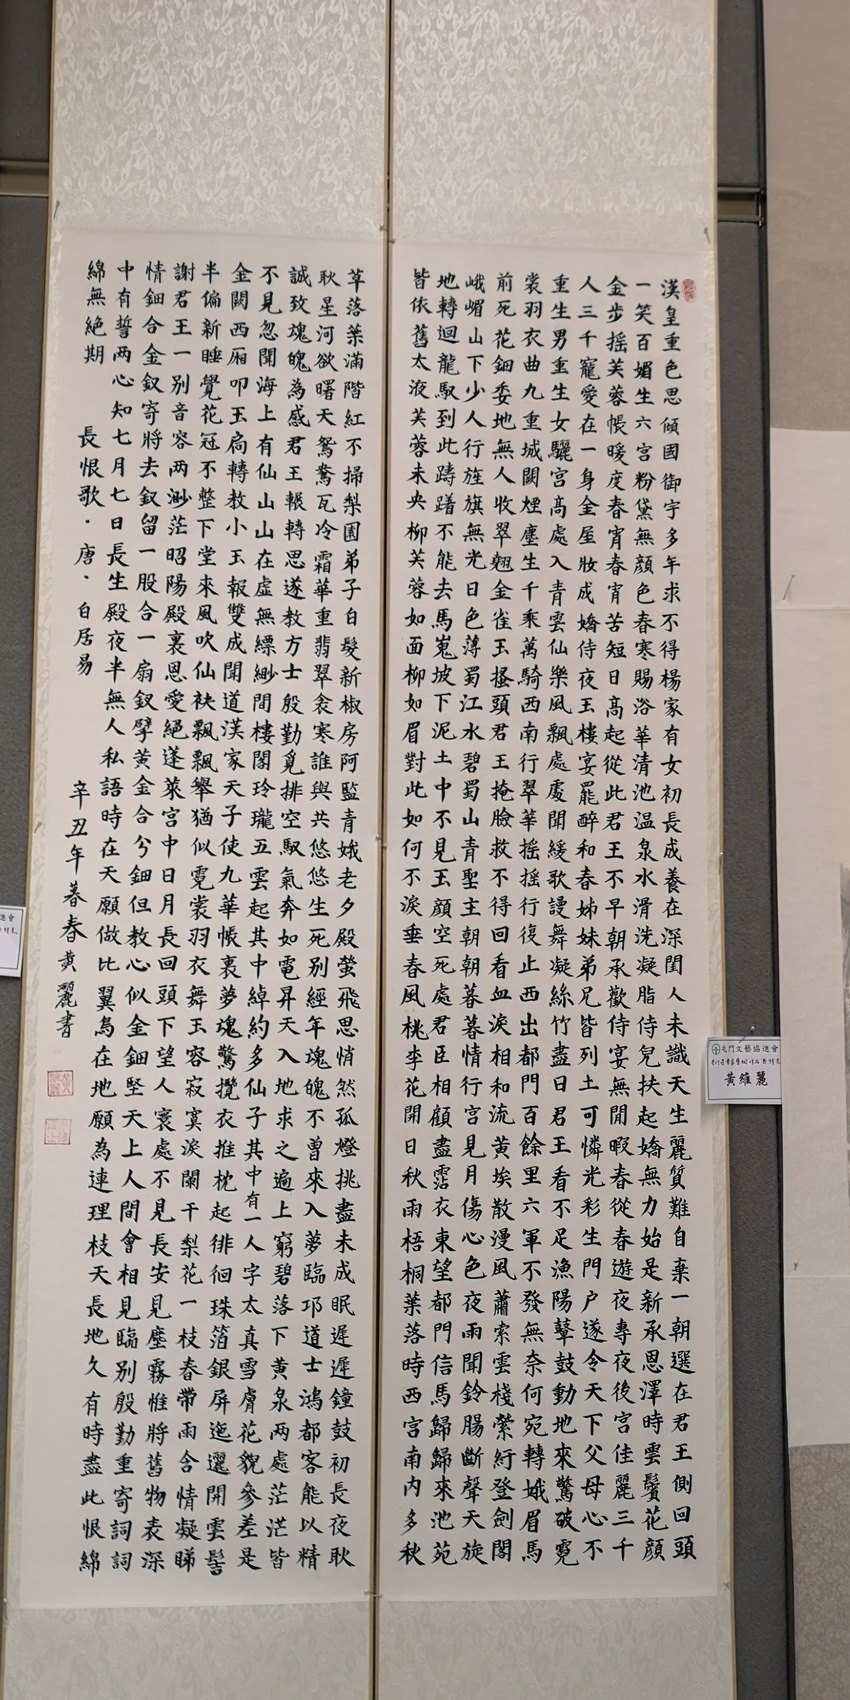 漢皇重色思傾國御宇多年求不得楊家有女初長成養在深閨人未識天生麗質難自棄一朝選在君王側回頭
一笑百媚生六宮粉黛無顏色春寒賜浴華清池温泉水滑洗凝脂侍兒扶起嬌無力始是新承恩澤時雲鬢花顏
金步搖芙蓉帳暖度春宵春宵苦短日高起從此君王不早朝承歡侍宴無閒暇春從春遊夜專夜後宮佳麗三千
人三千寵愛在一身金屋妝成嬌侍夜玉樓宴罷醉和春姊妹弟兄皆列土可憐光彩生門户遂令天下父母心不
重生男重生女驪宮高處入青雲仙樂風飄處處聞緩歌謾舞凝絲竹盡日君王看不足漁陽鼙鼓動地來驚破霓
裳羽衣曲九重城闕煙塵生千乘萬騎西南行翠華搖搖行復止西出都門百餘里六軍不發無奈何宛轉娥眉馬
前死花鈿委地無人收翠翹金雀玉搔頭君王掩臉救不得回看血淚相和流黃埃散漫風蕭索雲棧縈紆登劍閣
峨嵋山下少人行旌旗無光日色薄蜀江水碧蜀山青聖主朝朝暮暮情行宮見月傷心色夜雨聞鈴腸斷聲天旋
地轉迴龍馭到此躊躇不能去馬嵬坡下泥土中不見玉顏空死處君臣相顧盡霑衣東望都門信馬歸歸來池苑
皆依舊太液芙蓉未央柳芙蓉如面柳如眉對此如何不淚垂春風桃李花開日秋雨梧桐葉落時西宮南内多秋
草落葉滿階紅不掃梨園弟子白髮新椒房阿監青娥老夕殿螢飛思悄然孤燈挑盡未成眠遲遲鐘鼓初長夜耿
耿星河欲曙天鴛鴦瓦冷霜華重翡翠衾寒誰與共悠悠生死別經年魂魄不曾來入夢臨邛道士鴻都客能以精
誠致魂魄為感君王輾轉思遂教方士殷勤覓排空馭氣奔如電昇天入地求之遍上窮碧落下黃泉两處茫茫皆
不見忽聞海上有仙山山在虛無縹緲間樓閣玲瓏五雲起其中綽約多仙子其中有一人字太真雪膚花貌參差是
金闕西廂叩玉扃轉教小玉報雙成聞道漢家天子使九華帳裏夢魂驚攬衣推枕起徘徊珠箔銀屏迤邐開雲髻
半偏新睡覺花冠不整下堂來風吹仙袂飄飄舉猶似霓裳羽衣舞玉容寂寞淚闌干梨花一枝春帶雨含情凝睇
謝君王一别音容两渺茫昭陽殿裏恩愛絕蓬萊宮中日月長回頭下望人寰處不見長安見塵霧惟將舊物表深
情鈿合金釵寄將去釵留一股合一扇釵擘黃金合兮鈿但教心似金鈿堅天上人間會相見臨别殷勤重寄詞詞
中有誓两心知七月七日長生殿夜半無人私語時在天願做比翼鳥在地願為連理枝天長地久有時盡此恨綿
綿無絕期
長恨歌·唐·白居易
辛丑年暮春黄麗書
屯門文藝協進會
黃維麗